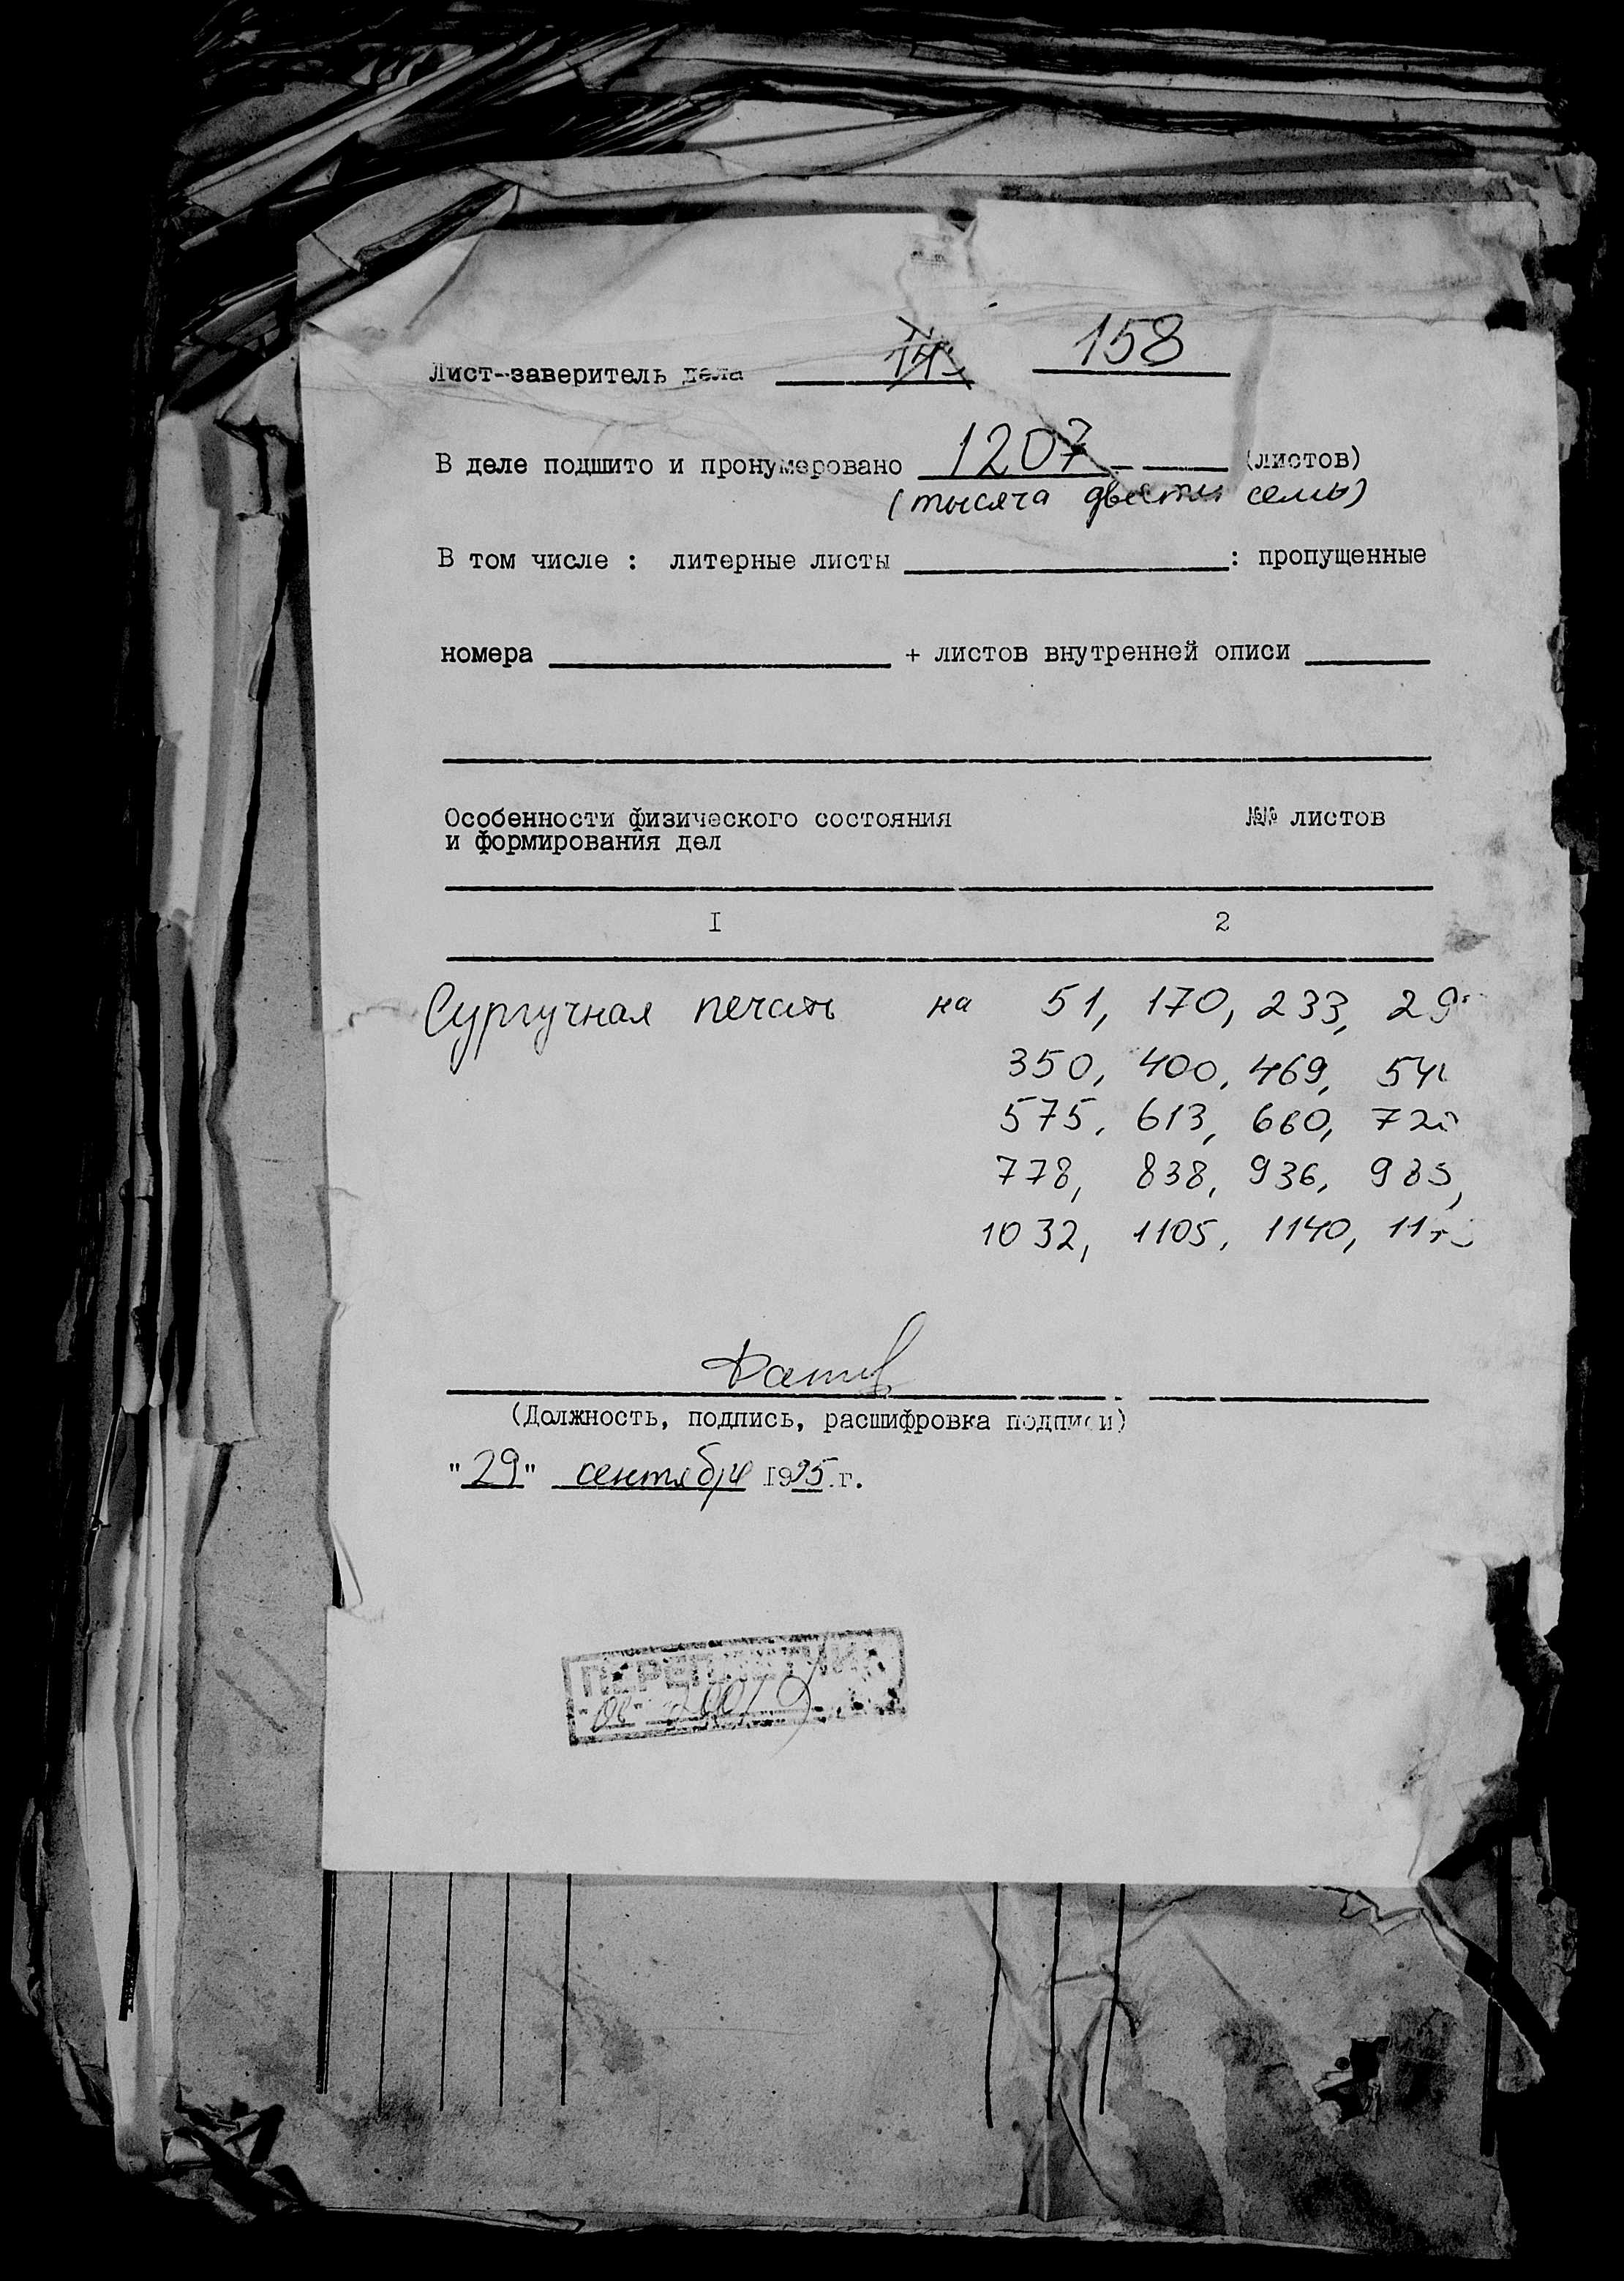 Лист-заверитель дела 158
В деле подшито и пронумеровано 1207 (листов)
(тысяча двести семь)
В том числе : литерные листы : пропущенные
номера + листов внутренней описи
Особенности физического состояния №№ листов
и формирования дел
I 2
Сургучная печать на 51, 170, 233,
350, 400, 469,
575, 613, 660,
778, 838, 936, 985,
1032, 1105, 1140,
(Должность, подпись, расшифровка подписи)
"29" сентября 1995 г.